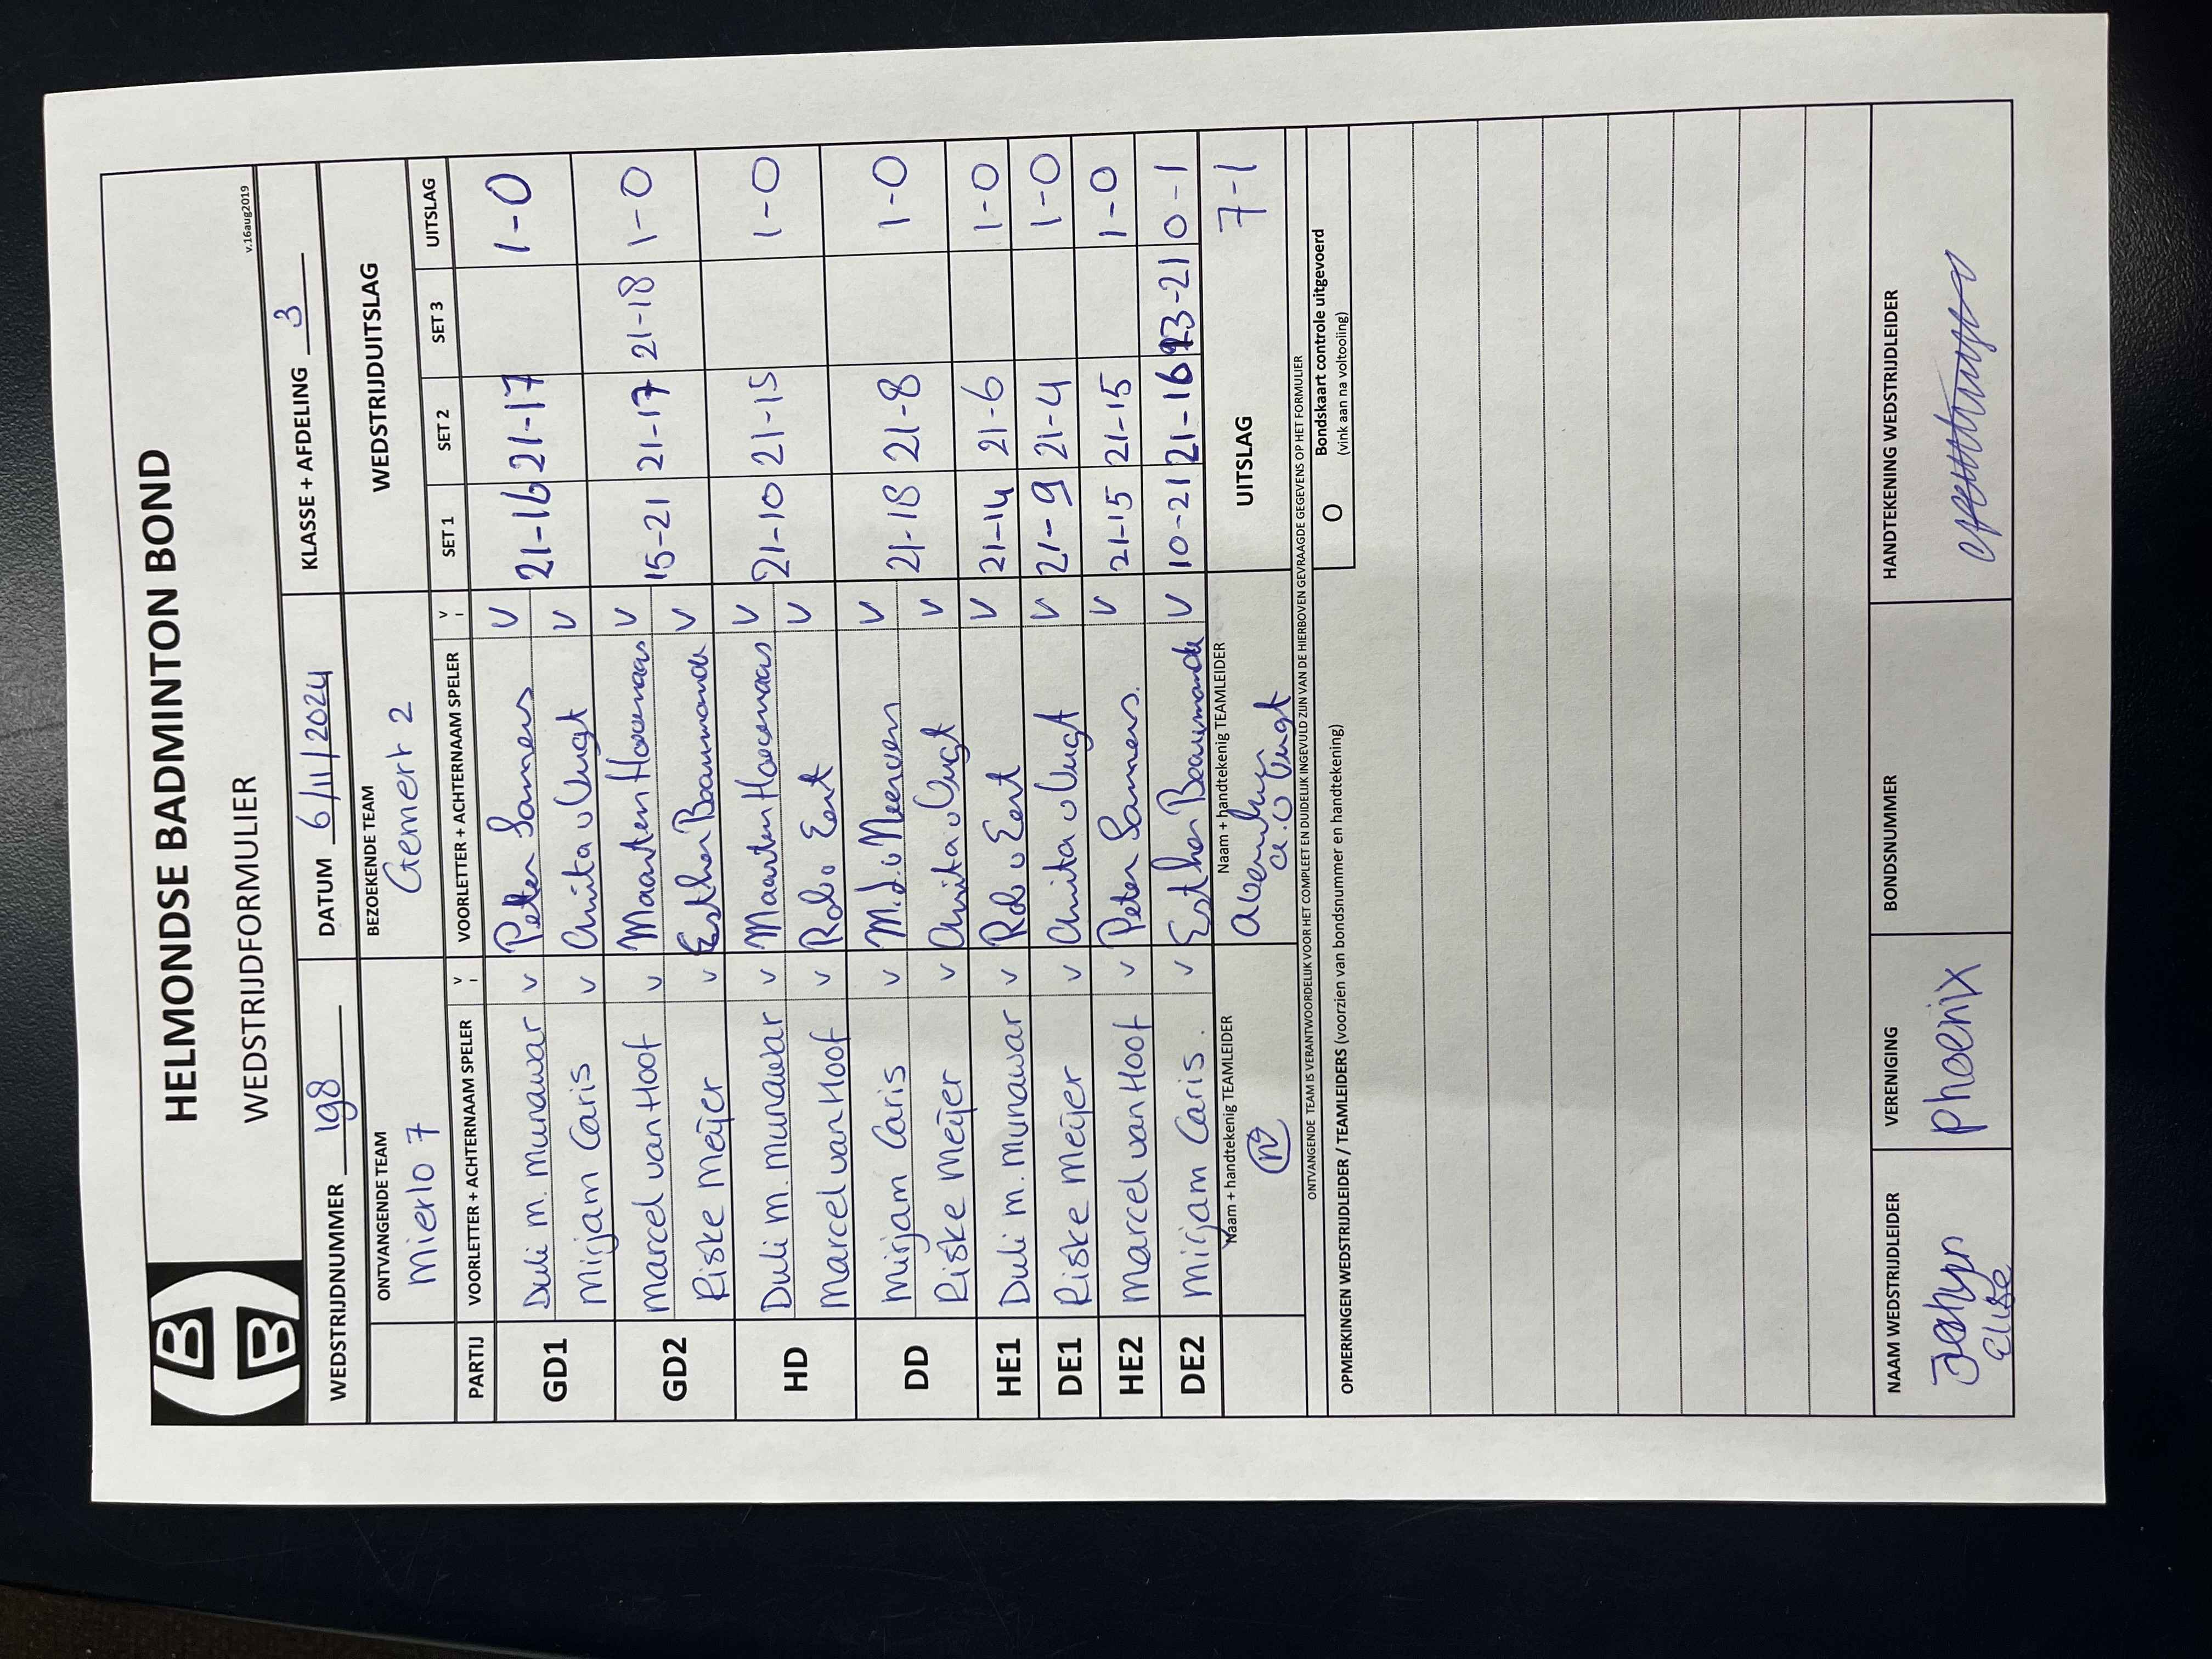 HELMONDSE BADMINTON BOND
WEDSTRIJDFORMULIER
v.16aug2019
WEDSTRIJDNUMMER 198 DATUM 6/11/2024 KLASSE + AFDELING 3
ONTVANGENDE TEAM BEZOEKENDE TEAM WEDSTRIJDUITSLAG
Mierlo 7 Gemert 2
PARTIJ VOORLETTER + ACHTERNAAM SPELER V VOORLETTER + ACHTERNAAM SPELER V SET 1 SET 2 SET 3 UITSLAG
GD1 Duli m. munawar v Peter Somers v 21-16 21-17 1-0
Mirjam Caris v Anita v Vugt v
GD2 Marcel van Hoof v Maarten v 15-21 21-17 21-18 1-0
Riske Meijer v Esther v
HD Duli m. munawar v Maarten v 21-10 21-15 1-0
Marcel van Hoof v Rob v Eert v
DD Mirjam Caris v M.L. v v 21-18 21-8 1-0
Riske Meijer v Anita v Vugt v
HE1 Duli m. munawar v Rob v Eert v 21-14 21-6 1-0
DE1 Riske Meijer v Anita v Vugt v 21-9 21-4 1-0
HE2 Marcel van Hoof v Peter Somers. v 21-15 21-15 1-0
DE2 Mirjam Caris. v Esther v 10-21 21-16 23-21 0-1
Naam + handtekenig TEAMLEIDER Naam + handtekenig TEAMLEIDER UITSLAG 7-1
a. v Vugt
ONTVANGENDE TEAM IS VERANTWOORDELIJK VOOR HET COMPLEET EN DUIDELIJK INGEVULD ZIJN VAN DE HIERBOVEN GEVRAAGDE GEGEVENS OP HET FORMULIER
O Bondskaart controle uitgevoerd
(vink aan na voltooiing)
OPMERKINGEN WEDSTRIJDLEIDER / TEAMLEIDERS (voorzien van bondsnummer en handtekening)
NAAM WEDSTRIJDLEIDER VERENIGING BONDSNUMMER HANDTEKENING WEDSTRIJDLEIDER
Phoenix
Elise